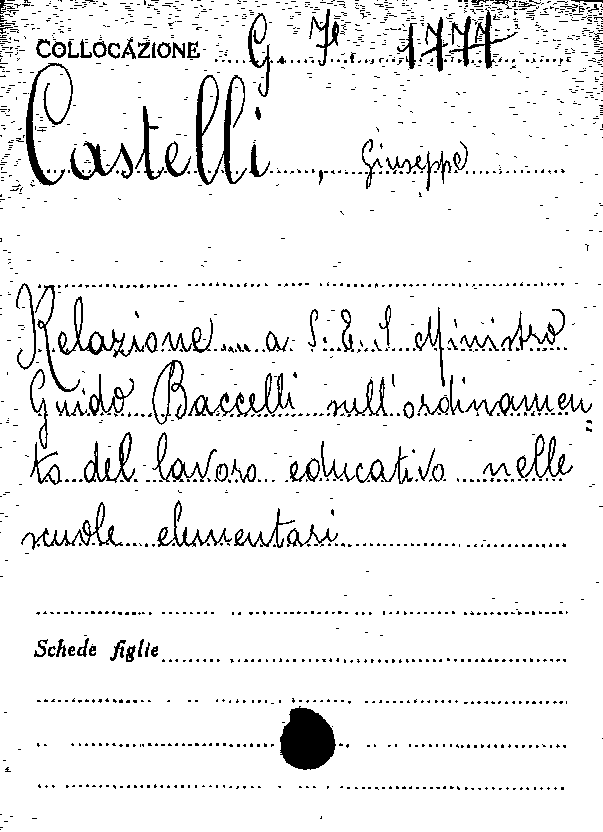 COLLOCAZIONE G. Fe. 1777
Castelli, Giuseppe
Relazione ... a S. E. I Ministro
Guido Baccelli sull'ordinamen=
to del lavoro educativo nelle
scuole elementari
Schede figlie